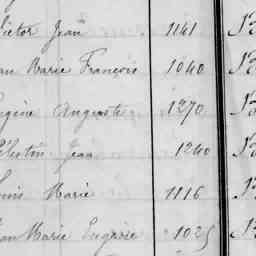 ictor Jean 1141 N
an Marie François 1040 N
ugène Auguste 1270 N
élestin Jean 1240 N
ouis Marie 1116 N
an Marie Eugène 1025 N